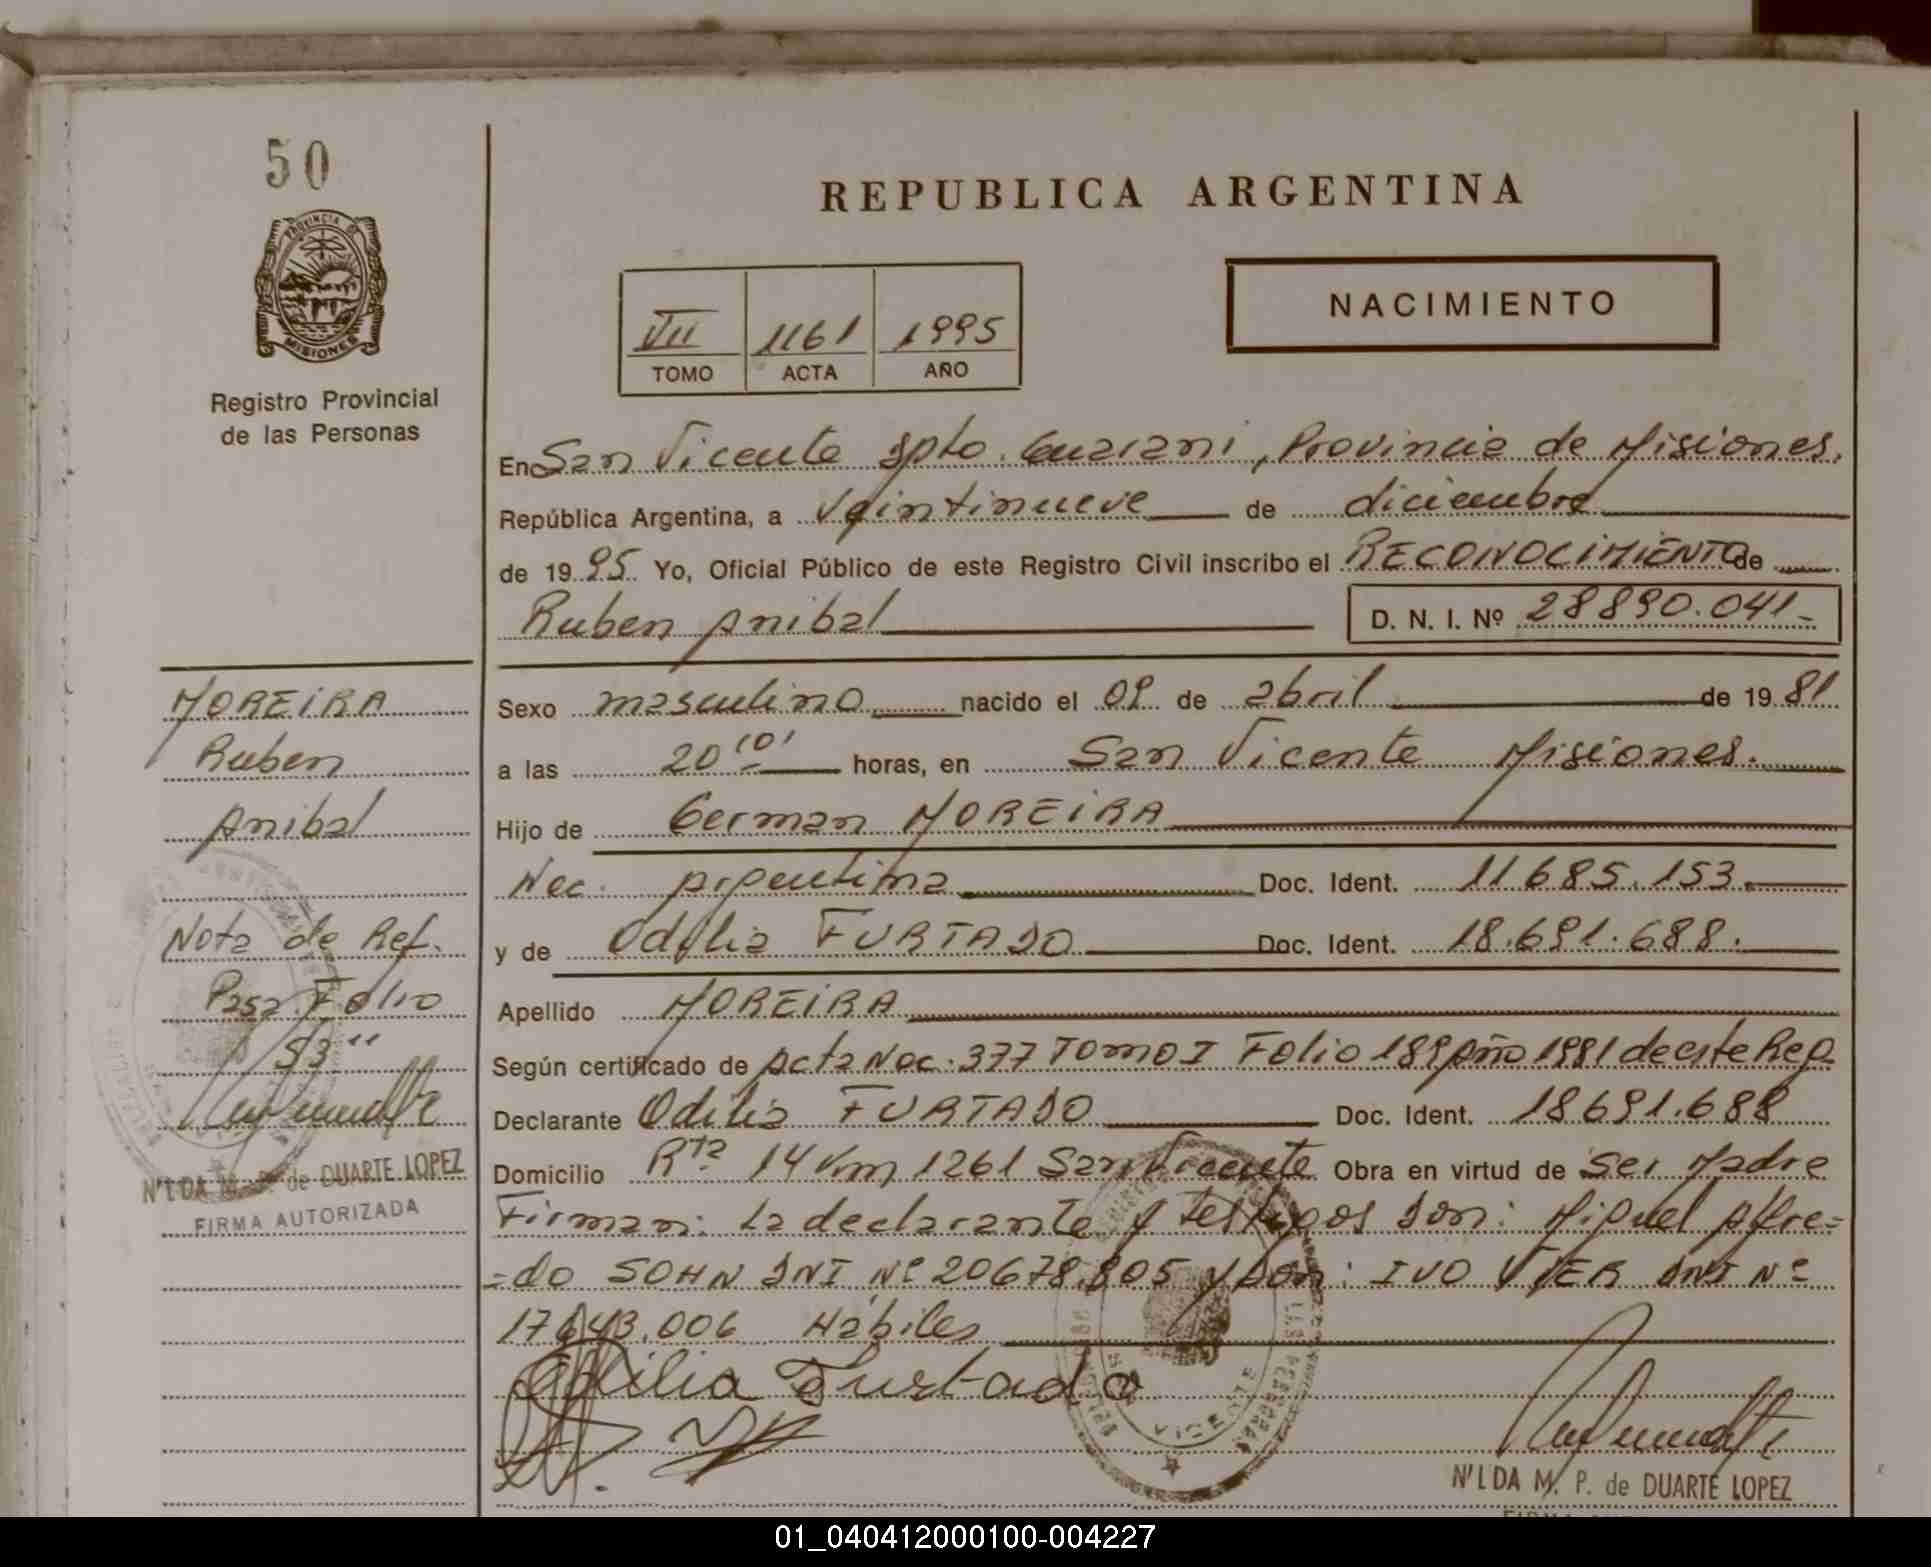 50
PROVINCIA DE
MISIONES
Registro Provincial
de las Personas
REPUBLICA ARGENTINA
NACIMIENTO
VII 1161 1995
TOMO ACTA AÑO
En San Vicente Dpto. Guarani, Provincia de Misiones.
República Argentina, a veintinueve de diciembre
de 1995 Yo, Oficial Público de este Registro Civil inscribo el RECONOCIMIENTO de
Ruben Anibal D. N. I. Nº 28890.041-
Sexo masculino nacido el 09 de abril de 1981
a las 20 horas, en San Vicente Misiones.
Hijo de German MOREIRA
Nac. Argentina Doc. Ident. 11685.153.
y de Odilia FURTADO Doc. Ident. 18.691.688.
Apellido MOREIRA
Según certificado de Acta Nac. 377 Tomo I Folio 189 Año 1981 de este Reg.
Declarante Odilia FURTADO Doc. Ident. 18691.688
Domicilio Rta 14 Km 1261 San Vicente Obra en virtud de Ser Madre
Firman: La declarante y Testigos Don: Miguel Alfre=
=do SOHN DNI Nº 20678.805 y Don: IVO VIER DNI Nº
17643.006 Hábiles
Odilia Furtado
VICENTE
N'LDA M. P. de DUARTE LOPEZ
MOREIRA
Ruben
Anibal
Nota de Ref.
Pasa Folio
53"
N'LDA M. P. de DUARTE LOPEZ
FIRMA AUTORIZADA
01_040412000100-004227